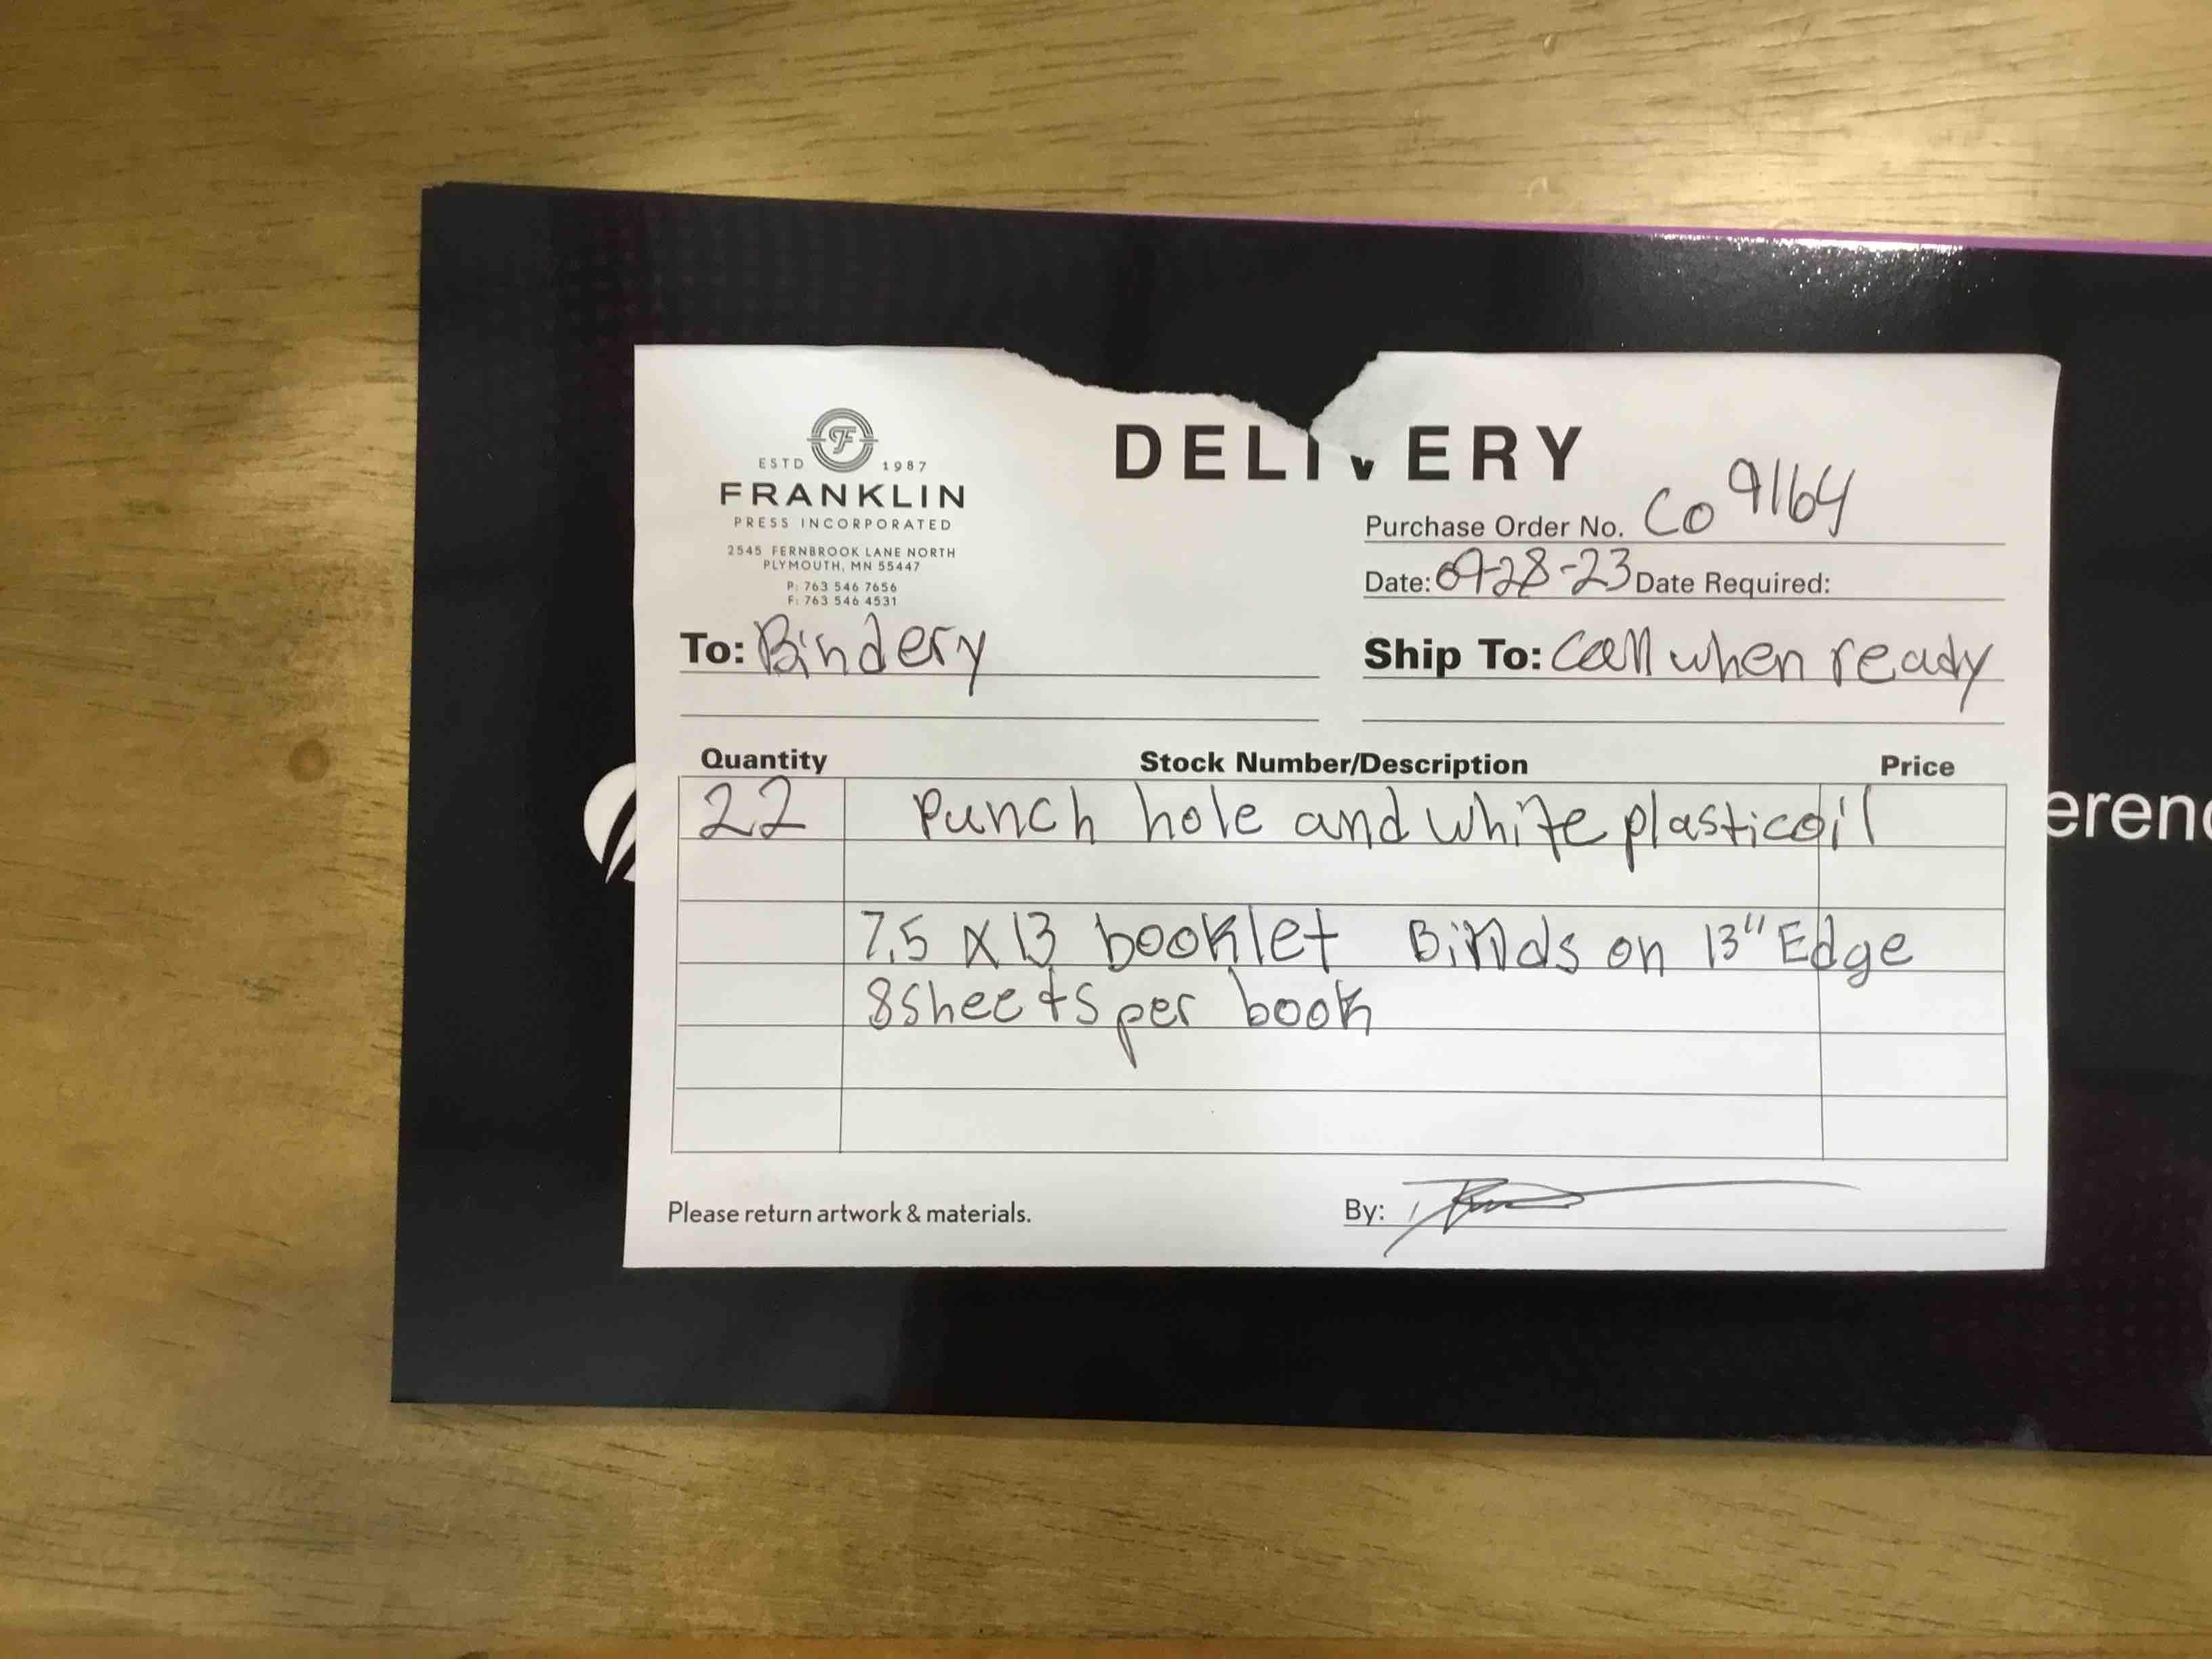 DELIVERY
ESTD 1987
FRANKLIN
PRESS INCORPORATED
2545 FERNBROOK LANE NORTH
PLYMOUTH, MN 55447
P: 763 546 7656
F: 763 546 4531
Purchase Order No. CO 91164
Date: 09-28-23 Date Required:
To: Bindery
Ship To: Call when ready
Quantity Stock Number/Description Price
22 Punch hole and white plasticoil
7.5 X 13 booklet Binds on 13" Edge
8 sheets per book
Please return artwork & materials.
By:
eren